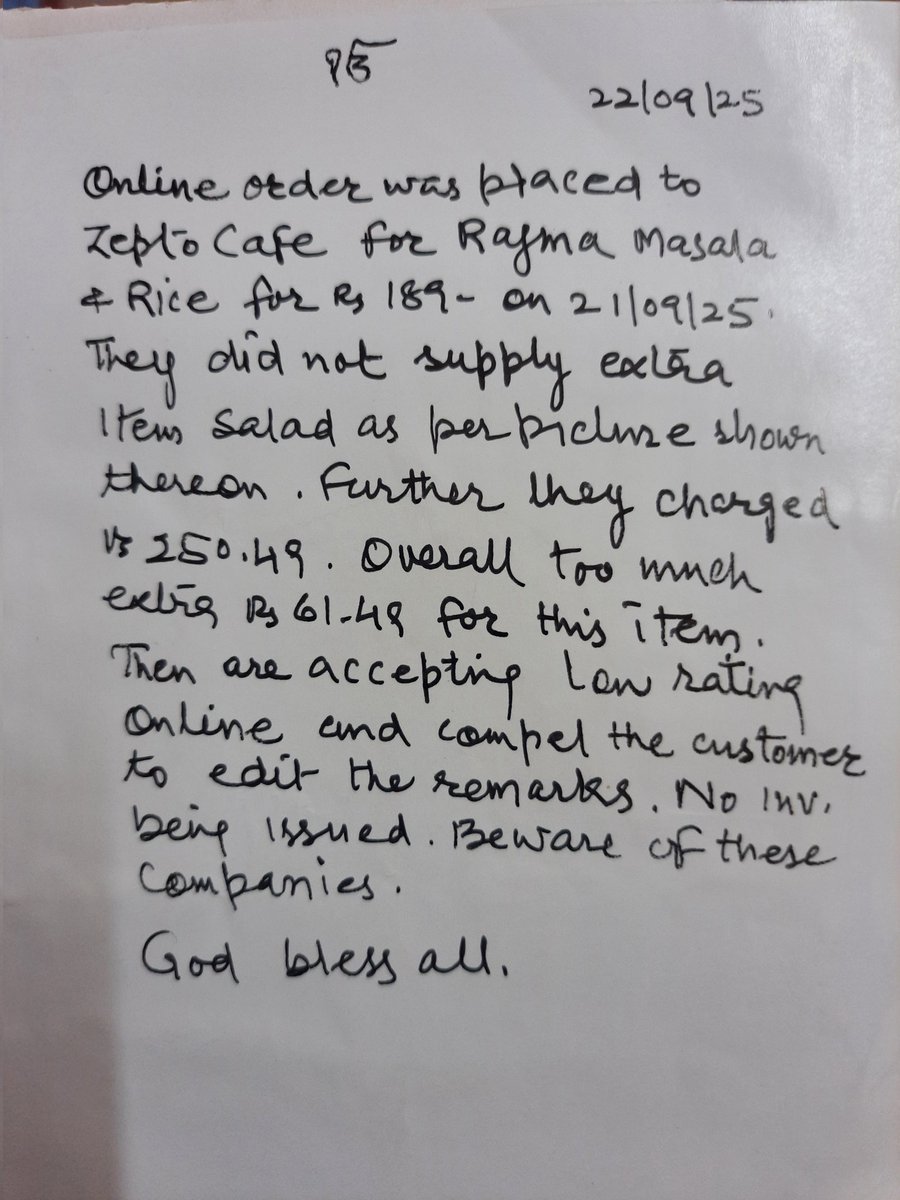 ੴ
22/09/25
Online order was placed to
Zepto Cafe for Rajma Masala
& Rice for Rs 189- on 21/09/25.
They did not supply extra
item salad as per picture shown
thereon. Further they charged
Rs 250.49. Overall too much
extra Rs 61.49 for this item.
Then are accepting low rating
online and compel the customer
to edit the remarks. No inv.
being issued. Beware of these
Companies.
God bless all.